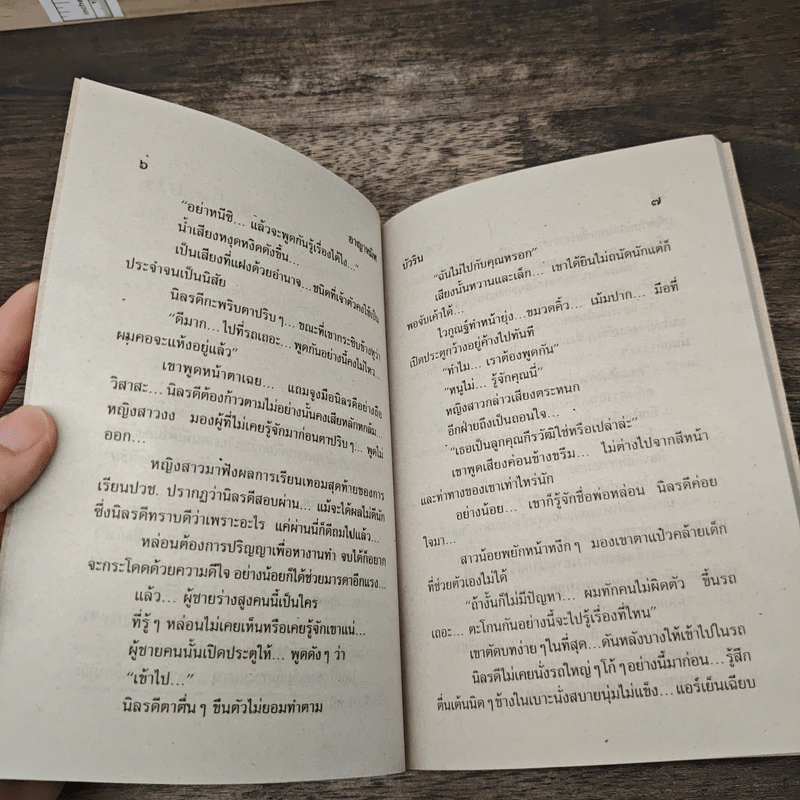 ๖
อาญาหมีพ
"อย่าหนีซิ... แล้วจะพูดกันรู้เรื่องได้ไง..."
น้ำเสียงหงุดหงิดดังขึ้น...
เป็นเสียงที่แฝงด้วยอำนาจ...ชนิดที่เจ้าตัวคงใช้เป็น
ประจำจนเป็นนิสัย
นิลรดีกะพริบตาปริบๆ...ขณะที่เขากระซิบข้างหูว่า
"ดีมาก...ไปที่รถเถอะ...พูดกันอย่างนี้คงไม่ไหว...
ผมคอจะแห้งอยู่แล้ว"
เขาพูดหน้าตาเฉย... แถมจูงมือนิลรดีอย่างถือ
วิสาสะ...นิลรดีต้องก้าวตามไม่อย่างนั้นคงเสียหลักหกล้ม...
หญิงสาวงง มองผู้ที่ไม่เคยรู้จักมาก่อนตาปริบๆ...พูดไม่
ออก...
หญิงสาวมาฟังผลการเรียนเทอมสุดท้ายของการ
เรียนปวช. ปรากฏว่านิลรดีสอบผ่าน... แม้จะได้ผลไม่ดีนัก
ซึ่งนิลรดีทราบดีว่าเพราะอะไร แค่ผ่านนี่ก็ดีถมไปแล้ว...
หล่อนต้องการปริญญาเพื่อหางานทำ จบได้ก็อยาก
จะกระโดดด้วยความดีใจ อย่างน้อยก็ได้ช่วยมารดาอีกแรง...
แล้ว... ผู้ชายร่างสูงคนนี้เป็นใคร
ที่รู้ๆ หล่อนไม่เคยเห็นหรือเคยรู้จักเขาแน่...
ผู้ชายคนนั้นเปิดประตูให้... พูดดังๆ ว่า
"เข้าไป..."
นิลรดีตาตื่นๆ ขืนตัวไม่ยอมทำตาม
๗
บัวริน
"ฉันไม่ไปกับคุณหรอก"
เสียงนั้นหวานและเล็ก... เขาได้ยินไม่ถนัดนักแต่ก็
พอจับเค้าได้...
ไวกูณฐ์ทำหน้ายุ่ง...ขมวดคิ้ว... เม้มปาก... มือที่
เปิดประตูกว้างอยู่ค้างไปทันที
"ทำไม... เราต้องพูดกัน"
"หนูไม่... รู้จักคุณนี่"
หญิงสาวกล่าวเสียงตระหนก
อีกฝ่ายถึงเป็นถอนใจ...
"เธอเป็นลูกคุณกีรวัฒิใช่หรือเปล่าล่ะ"
เขาพูดเสียงค่อนข้างขรึม... ไม่ต่างไปจากสีหน้า
และท่าทางของเขาเท่าไหร่นัก
อย่างน้อย... เขาก็รู้จักชื่อพ่อหล่อน นิลรดีค่อย
ใจมา...
สาวน้อยพยักหน้าหงึกๆ มองเขาตาแป๋วคล้ายเด็ก
ที่ช่วยตัวเองไม่ได้
"ถ้างั้นก็ไม่มีปัญหา... ผมทักคนไม่ผิดตัว ขึ้นรถ
เถอะ... ตะโกนกันอย่างนี้จะไปรู้เรื่องที่ไหน"
เขาตัดบทง่ายๆในที่สุด...ดันหลังบางให้เข้าไปในรถ
นิลรดีไม่เคยนั่งรถใหญ่ๆโก้ๆอย่างนี้มาก่อน...รู้สึก
ตื่นเต้นนิดๆข้างในเบาะนั่งสบายนุ่มไม่แข็ง...แอร์เย็นเฉียบ